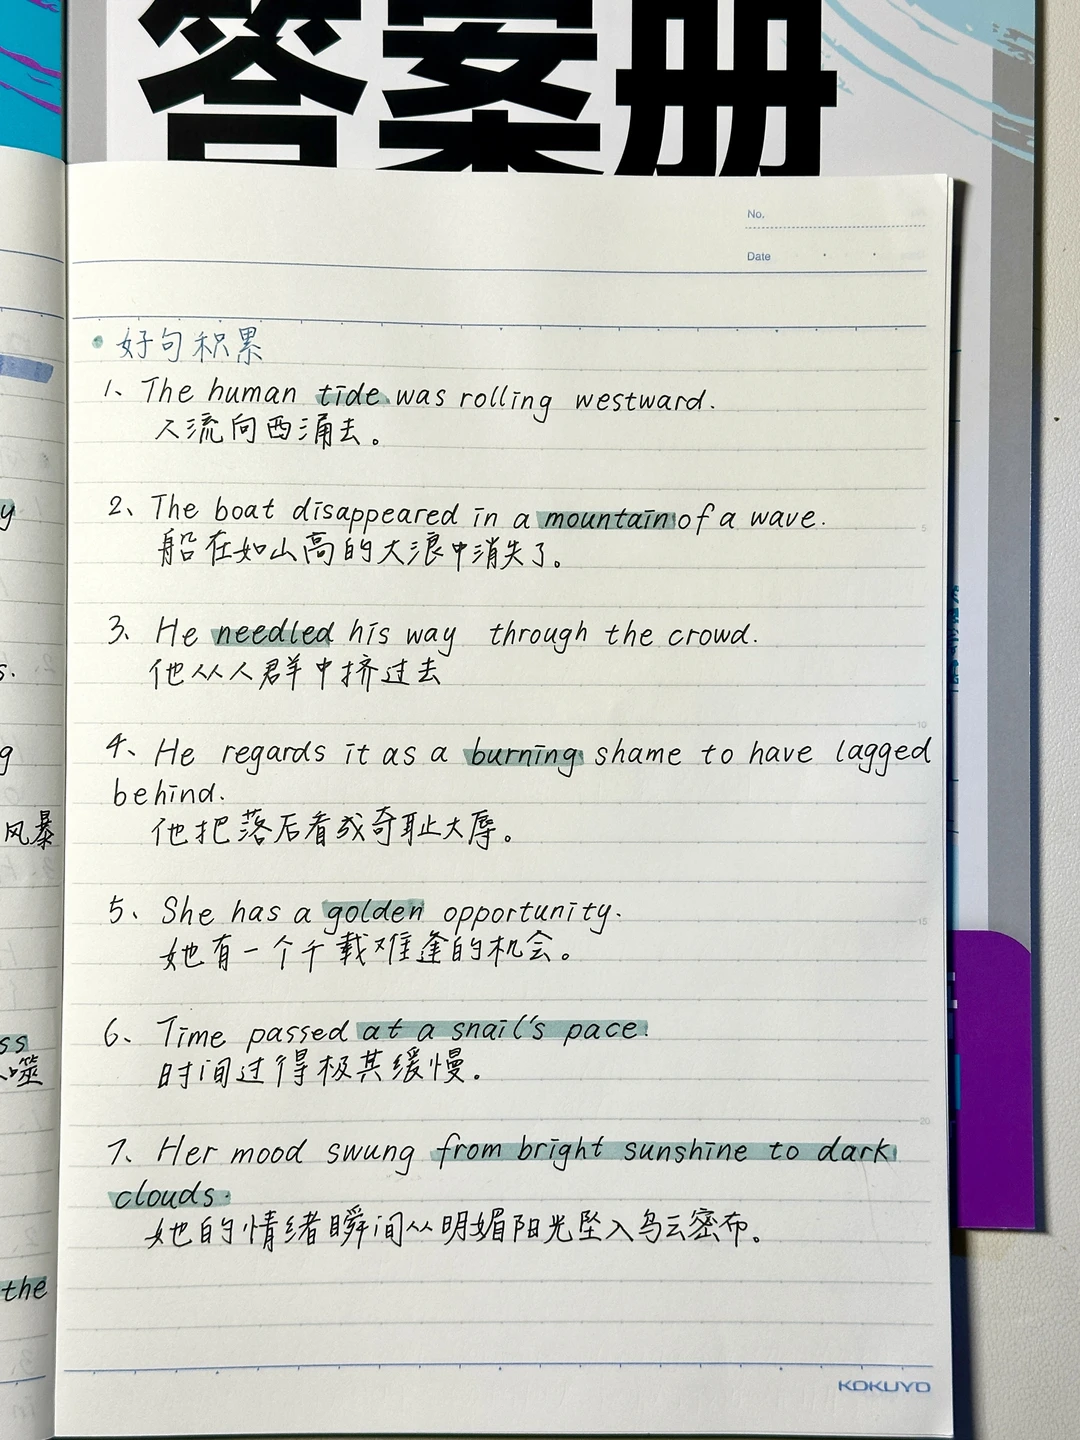 答案册
No.
Date
• 好句积累
1、The human tide was rolling westward.
人流向西涌去。
2、The boat disappeared in a mountain of a wave.
船在如山高的大浪中消失了。
3、He needled his way through the crowd.
他从人群中挤过去
4、He regards it as a burning shame to have lagged
behind.
他把落后看成奇耻大辱。
5、She has a golden opportunity.
她有一个千载难逢的机会。
6、Time passed at a snail's pace.
时间过得极其缓慢。
7、Her mood swung from bright sunshine to dark
clouds.
她的情绪瞬间从明媚阳光坠入乌云密布。
KOKUYO
y
s.
g
风暴
ss
噬
the
5
10
15
20